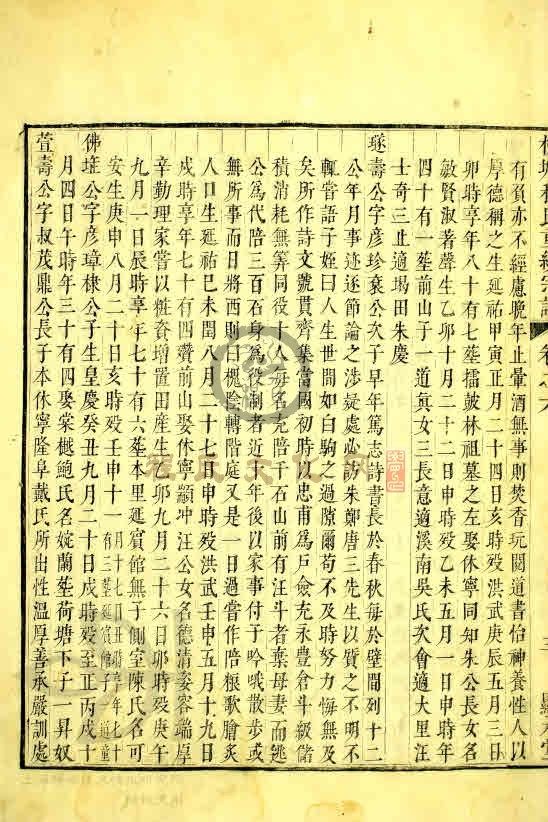 有負亦不經慮晚年止葷酒無事則焚香玩閱道書怡神養性人以
厚德稱之生延祐甲寅正月二十四日亥時殁洪武庚辰五月三日
卯時享年八十有七塟擂鼓林祖墓之左娶休寧同知朱公長女名
敏賢淑著聲生乙卯十月二十二日申時殁乙未五月一日申時年
四十有一塟前山子一道真女三長意適溪南吳氏次會適大里汪
士奇三止適場田朱慶
璲壽公字彥珍袞公次子早年篤志詩書長於春秋每於壁間列十二
公年月事迹逐節論之涉疑處必訪朱鄭唐三先生以質之不明不
輒嘗語子姪曰人生世間如白駒之過隙爾苟不及時努力悔無及
矣所作詩文號貫齊集當國初時以忠甫為戶僉充永豐倉斗級儲
積消耗無筭同役十人每名充陪千石山前有汪斗者棄母妻而逃
公為代陪三百石身為役制者近十年後以家事付于吟哦散步或
無所事而日將西則曰槐陰轉階庭又是一日過嘗作陪粮歌膾炙
人口生延祐巳未閏八月二十七日申時殁洪武壬申五月十九日
戌時享年七十有四
前山娶休寧顯冲汪公女名德清姿容端厚
辛勤理家嘗以粧奩增置田產生乙卯九月二十六日卯時殁庚午
九月一日辰時享年七十有六塟本里延賓館無子側室陳氏名可
安生庚申八月二十日亥時殁壬申十一月十七日丑時享年七十
有三塟延賓館前子一道童
佛㙷公字彥璋棣公子生皇慶癸丑九月二十日戌時殁至正丙戌十
月四日午時年三十有四娶棠樾鮑氏名婉蘭塟荷塘下子一昇奴
萱壽公字叔茂鼎公長子本休寧隆阜戴氏所出性溫厚善承嚴訓處